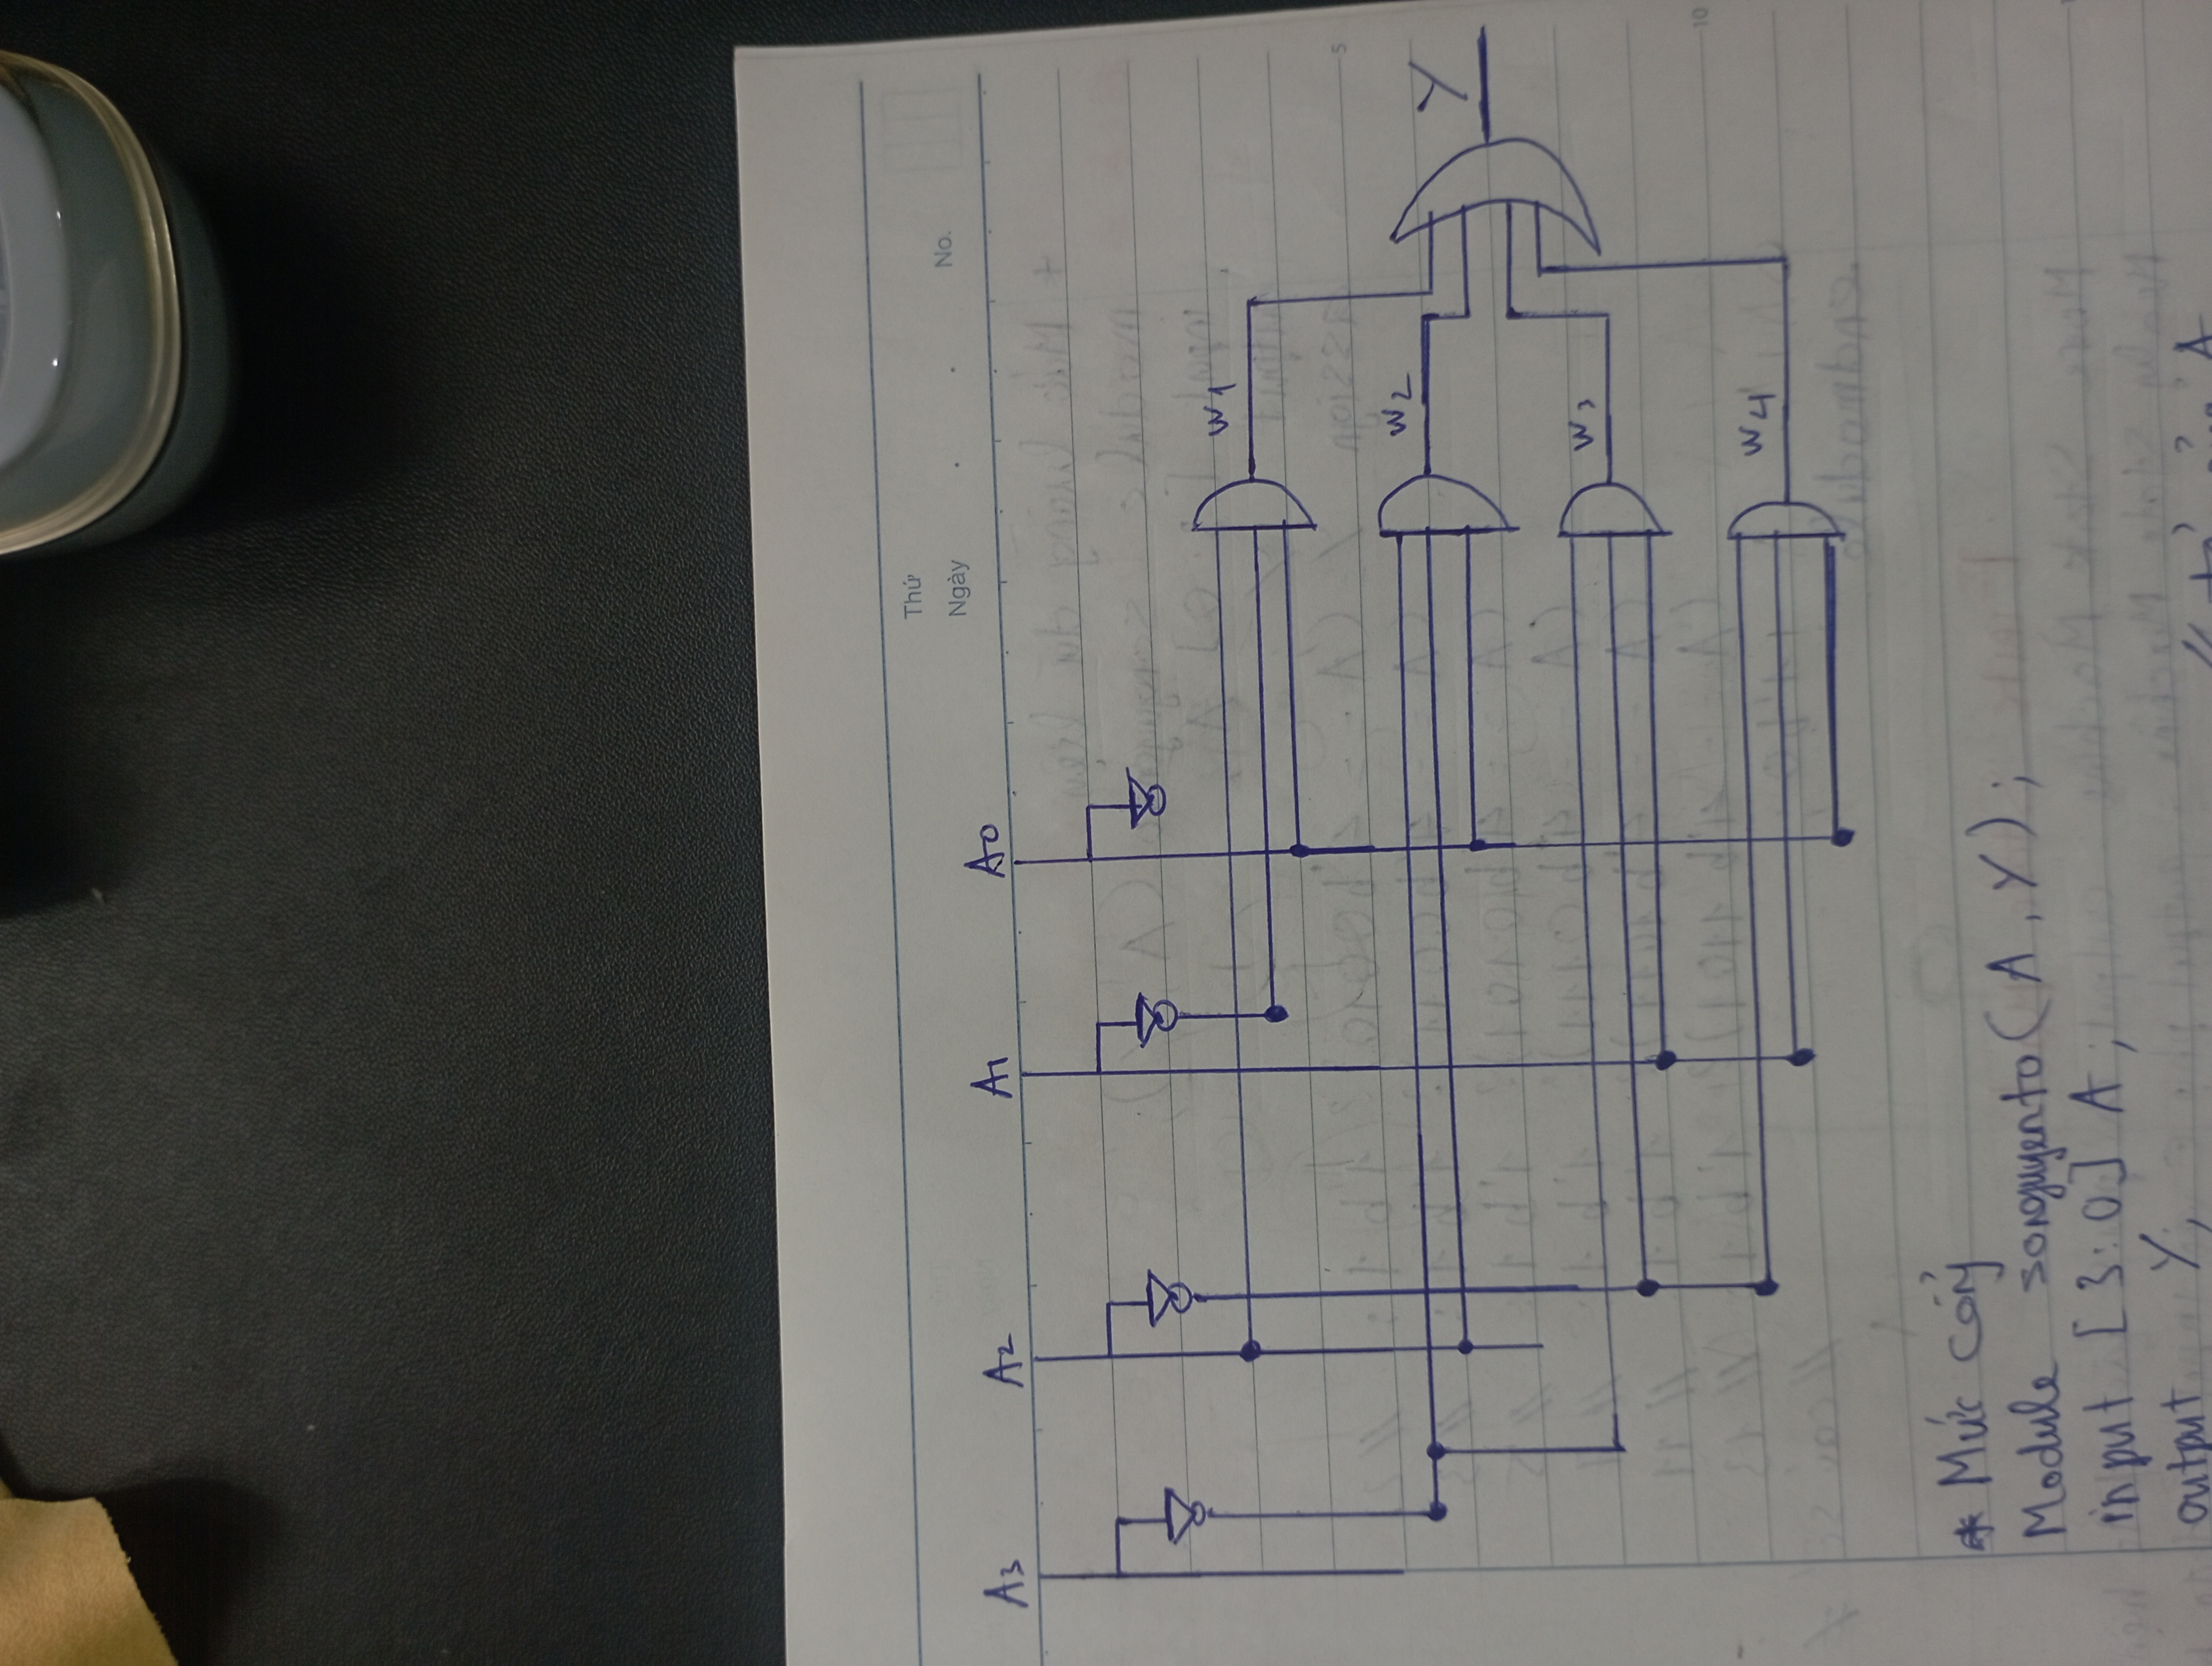 Thứ
Ngày . . No.
A3 A2 A1 A0
W1
5
W2
Y
W3
10
W4
* Mức cổng
Module songuyento(A, Y);
input [3:0] A;
output Y;